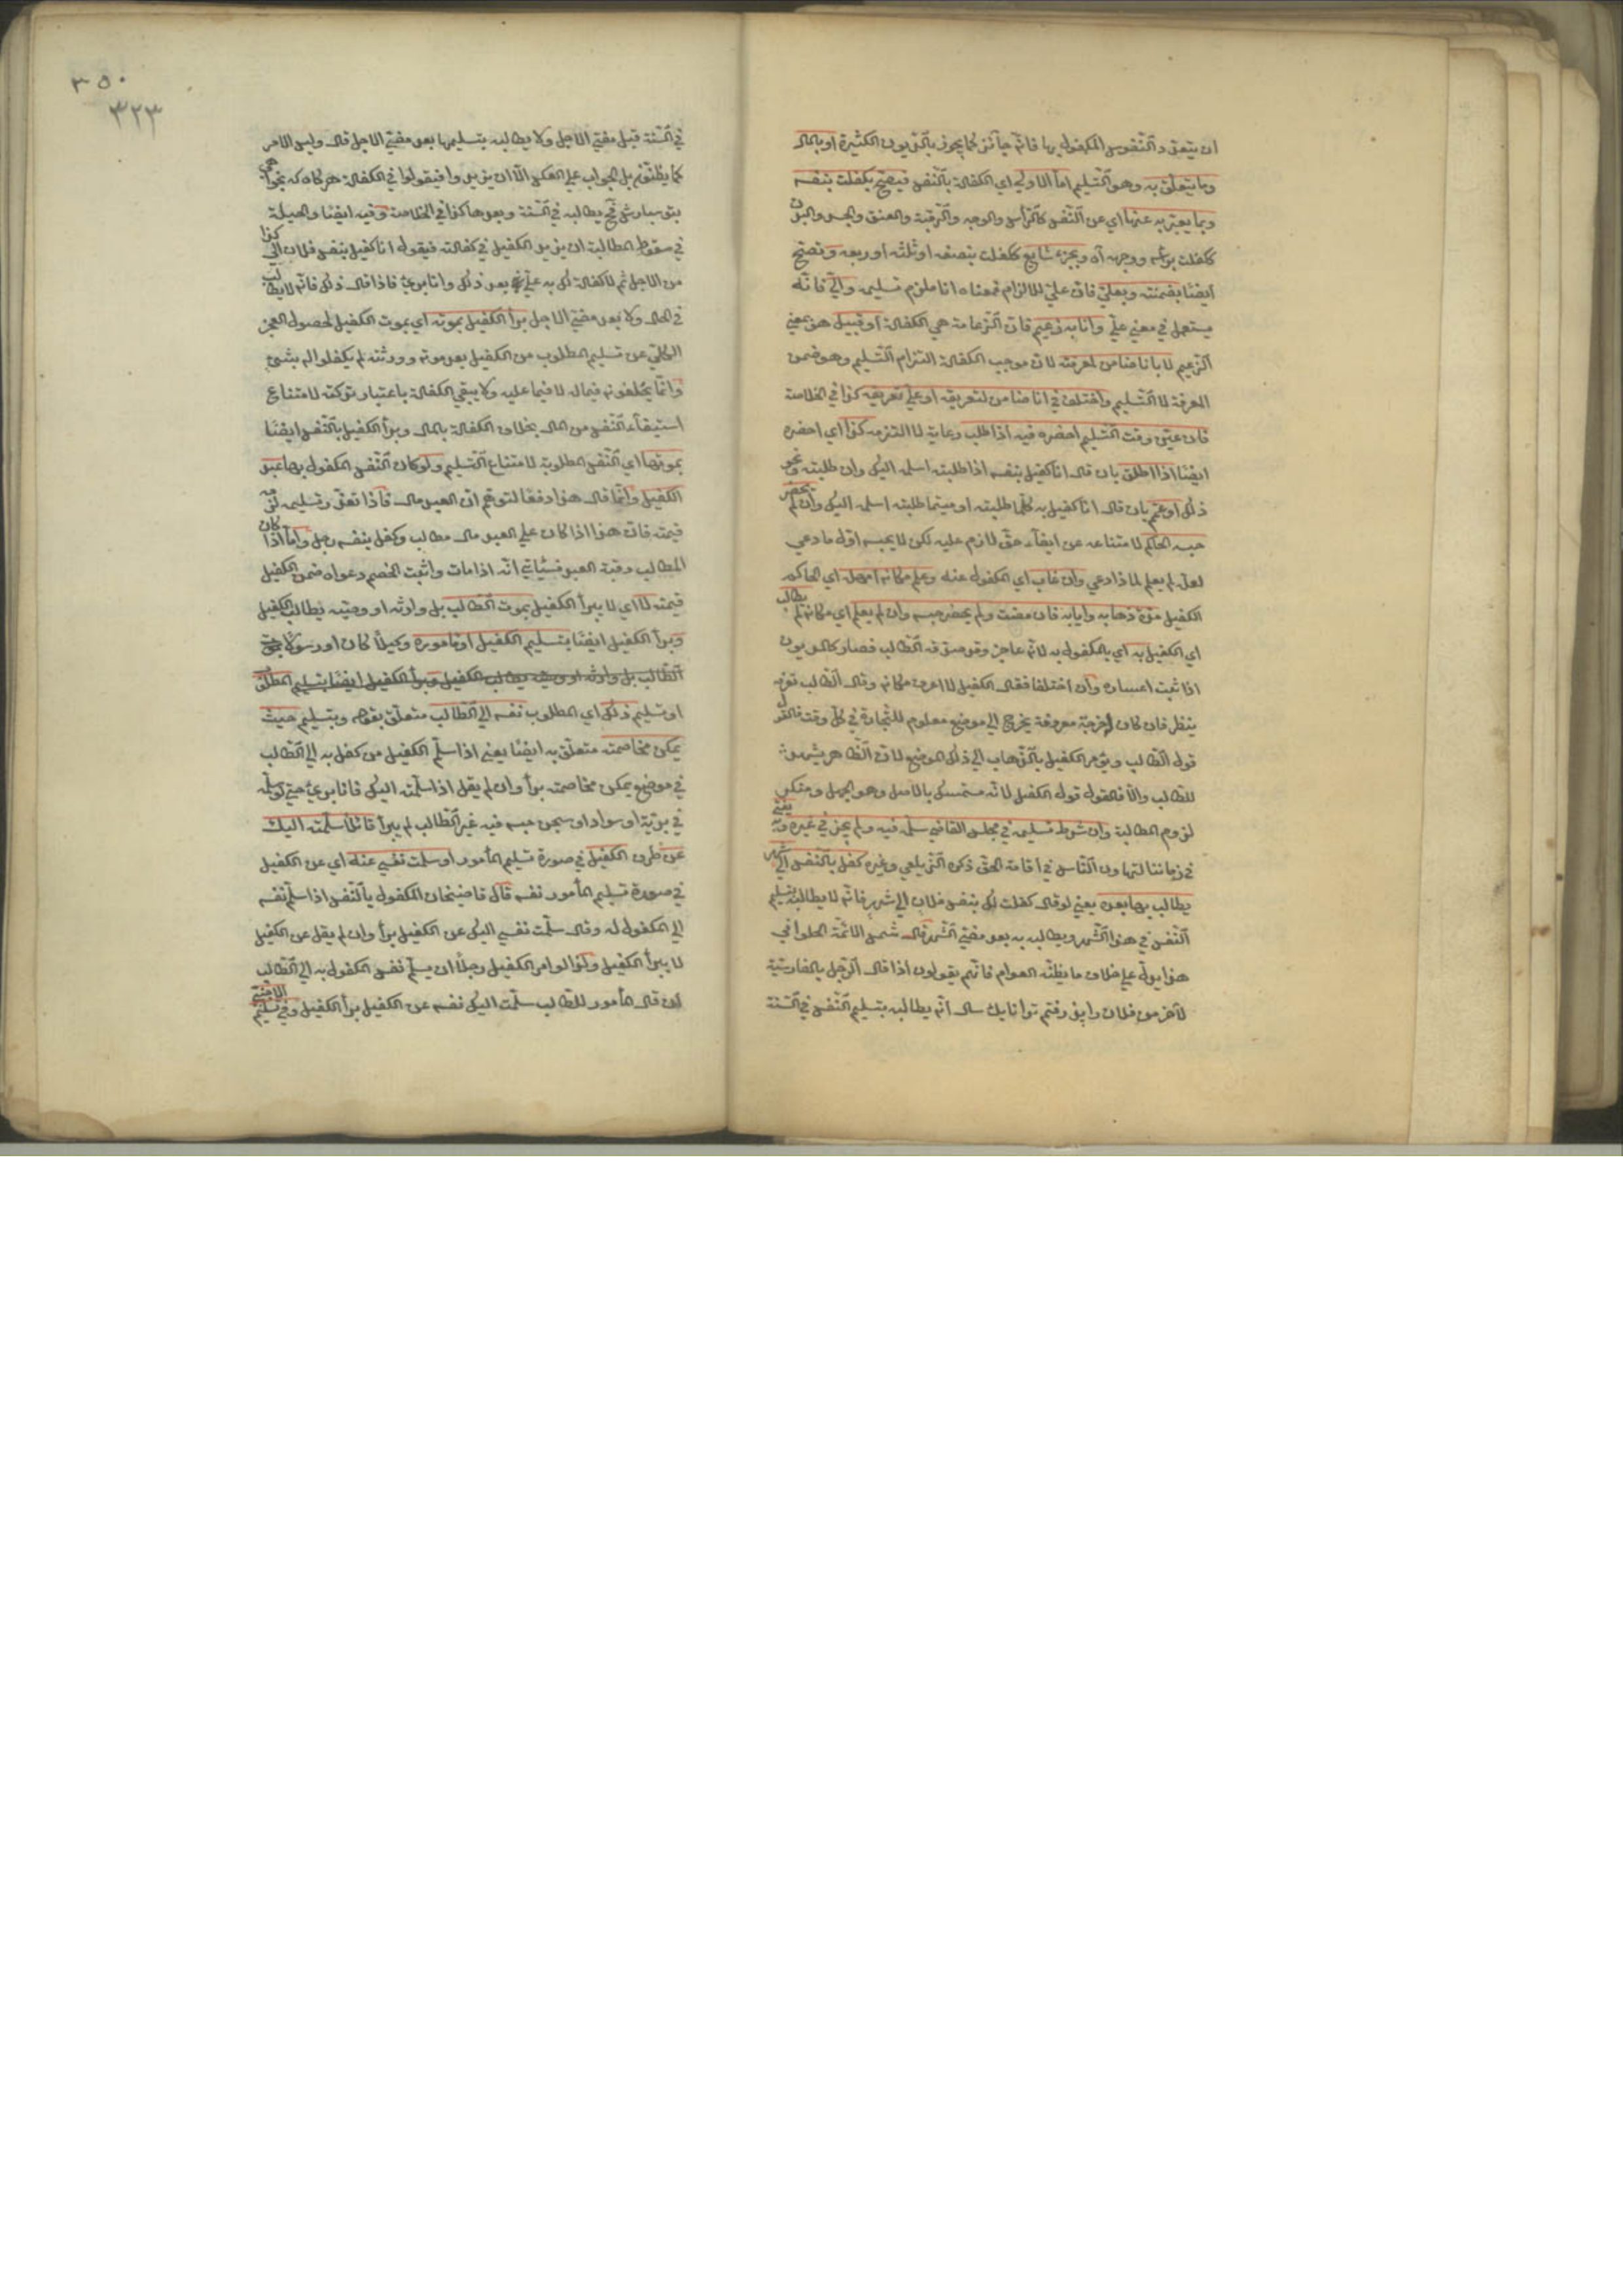 ان يتعدد النفوس المكفول بها فانه جائز كما يجوز بالديون الكثيرة او بالمال
وما يتعلق به وهو التسليم اما الاولى اي الكفالة بالنفس فيصح بكفلت بنفسه
وبما يعبر به عنها اي عن النفس كالرأس والوجه والرقبة والعنق والجسد والبدن
ككفلت برأسه ووجهه آه وبجزء شايع ككفلت بنصفه او ثلثه او ربعه وتصح
ايضا بضمنته وبعلي فان علي للالزام فمعناه انا ملزم تسليمه والي فانه
يستعمل في معنى علي وانا به زعيم فان الزعامة هي الكفالة او قبيل هو بمعنى
الزعيم لا بانا ضامن لمعرفته لان موجب الكفالة التزام التسليم وهو ضمن
المعرفة لا التسليم واختلف في انا ضامن لتعريفه او على تعريفه كذا في الخلاصة
فان عين وقت التسليم احضره فيه اذا طلب رعاية لما التزمه كذا اي احضره
ايضا اذا اطلق بان قال انا كفيل بنفسه اذا طلبته اسلمه اليك وان طلبته ونحو
ذلك او عمم بان قال انا كفيل به كلما طلبته او حيثما طلبته اسلمه اليك وان لم يحضر
حبسه الحاكم لامتناعه عن ايفاء حق لازم عليه لكن لا يحبسه اول ما دعي
لعله لم يعلم لماذا دعي وان غاب اي المكفول عنه وعلم مكانه امهل اي الحاكم
الكفيل مدة ذهابه وايابه فان مضت ولم يحضر حبسه وان لم يعلم اي مكانه لم يطالب
اي الكفيل به اي بالمكفول به لانه عاجز وقد صدقه الطالب فصار كالمديون
اذا ثبت اعساره وان اختلفا فقال الكفيل لا اعرف مكانه وقال الطالب تعرفه
ينظر فان كان له خرجة معروفة يخرج الى موضع معلوم للتجارة في كل وقت فالقول
قول الطالب ويؤمر الكفيل بالذهاب الى ذلك الموضع لان الظاهر يشهد
للطالب والا فالقول قول الكفيل لانه متمسك بالاصل وهو الجهل ومنكر
لزوم المطالبة وان شرط تسليمه في مجلس القاضي سلمه فيه ولم يجز في غيره وبه يفتى
في زماننا لتهاون الناس في اقامة الحق ذكره الزيلعي وغيره كفل بالنفس الى شهر
يطالب بها بعده يعني لو قال كفلت لك بنفس فلان الى شهر فانه لا يطالب بتسليم
النفس في هذا الشهر ويطالب به بعد مضي الشهر قال شمس الائمة الحلواني
هذا يدل على خلاف ما يظنه العوام فانهم يقولون اذا قال الرجل بالفارسية
لآخر من فلان را پذرفتم ترا تا يك سال انه يطالبه بتسليم النفس في السنة
٣٥٠
٣٢٣
في السنة قبل مضي الاجل ولا يطالبه بتسليمها بعد مضي الاجل قال وليس الامر
كما يظنونه بل الجواب على العكس الا ان يزيدوا فيقولوا في الكفالة هركاه كه بخواهي
بتو سپارمش فح يطالبه في السنة وبعدها كذا في الخلاصة وفيه ايضا والحيلة
في سقوط المطالبة ان يزيد الكفيل في كفالته فيقول انا كفيل بنفس فلان الى كذا
من الاجل ثم لا كفالة لك به علي بعد ذلك وانا بريء فاذا قال ذلك فانه لا يطالب
في الحال ولا بعد مضي الاجل برأ الكفيل بموته اي بموت الكفيل لحصول العجز
الكلي عن تسليم المطلوب من الكفيل بعد موته وورثته لم يكفلوا له بشيء
وانما يخلفونه فيما له لا فيما عليه ولا يبقى الكفالة باعتبار تركته لامتناع
استيفاء النفس من المال بخلاف الكفالة بالمال وبرأ الكفيل بالنفس ايضا
بموتها اي النفس المطلوبة لامتناع التسليم ولو كان النفس المكفول بها عبد
الكفيل وانما قال هذا دفعا لتوهم ان العبد مال فاذا تعذر تسليمه لزمه
قيمته فان هذا اذا كان على العبد مال مطالب وكفل بنفسه رجل واما اذا كان
المطالب رقبة العبد فسيأتي انه اذا مات واثبت الخصم دعواه ضمن الكفيل
قيمته لا اي لا يبرأ الكفيل بموت الطالب بل وارثه او وصيه يطالب الكفيل
وبرأ الكفيل ايضا بتسليم الكفيل او مأموره وكيلا كان او رسولا
الطالب بل وارثه او وصيه يطالب الكفيل وبرأ الكفيل ايضا بتسليم المطلوب
او تسليم ذلك اي المطلوب نفسه الى الطالب متعلق بقوله وبتسليم حيث
يمكن مخاصمته متعلق به ايضا يعني اذا سلم الكفيل من كفل به الى الطالب
في موضع يمكن مخاصمته برأ وان لم يقل اذا سلمته اليك فانا بريء حتى لو سلمه
في برية او سواد او سجن حبسه فيه غير الطالب لم يبرأ قائلا سلمته اليك
عن طرف الكفيل في صورة تسليم المأمور او سلمت نفسي عنه اي عن الكفيل
في صورة تسليم المأمور نفسه قال قاضيخان المكفول بالنفس اذا سلم نفسه
الى المكفول له وقال سلمت نفسي اليك عن الكفيل برأ وان لم يقل عن الكفيل
لا يبرأ الكفيل ولو امر الكفيل رجلا ان يسلم نفس المكفول به الى الطالب
ان قال المأمور للطالب سلمت اليك نفسه عن الكفيل برأ الكفيل وفي تسليم الاجنبي